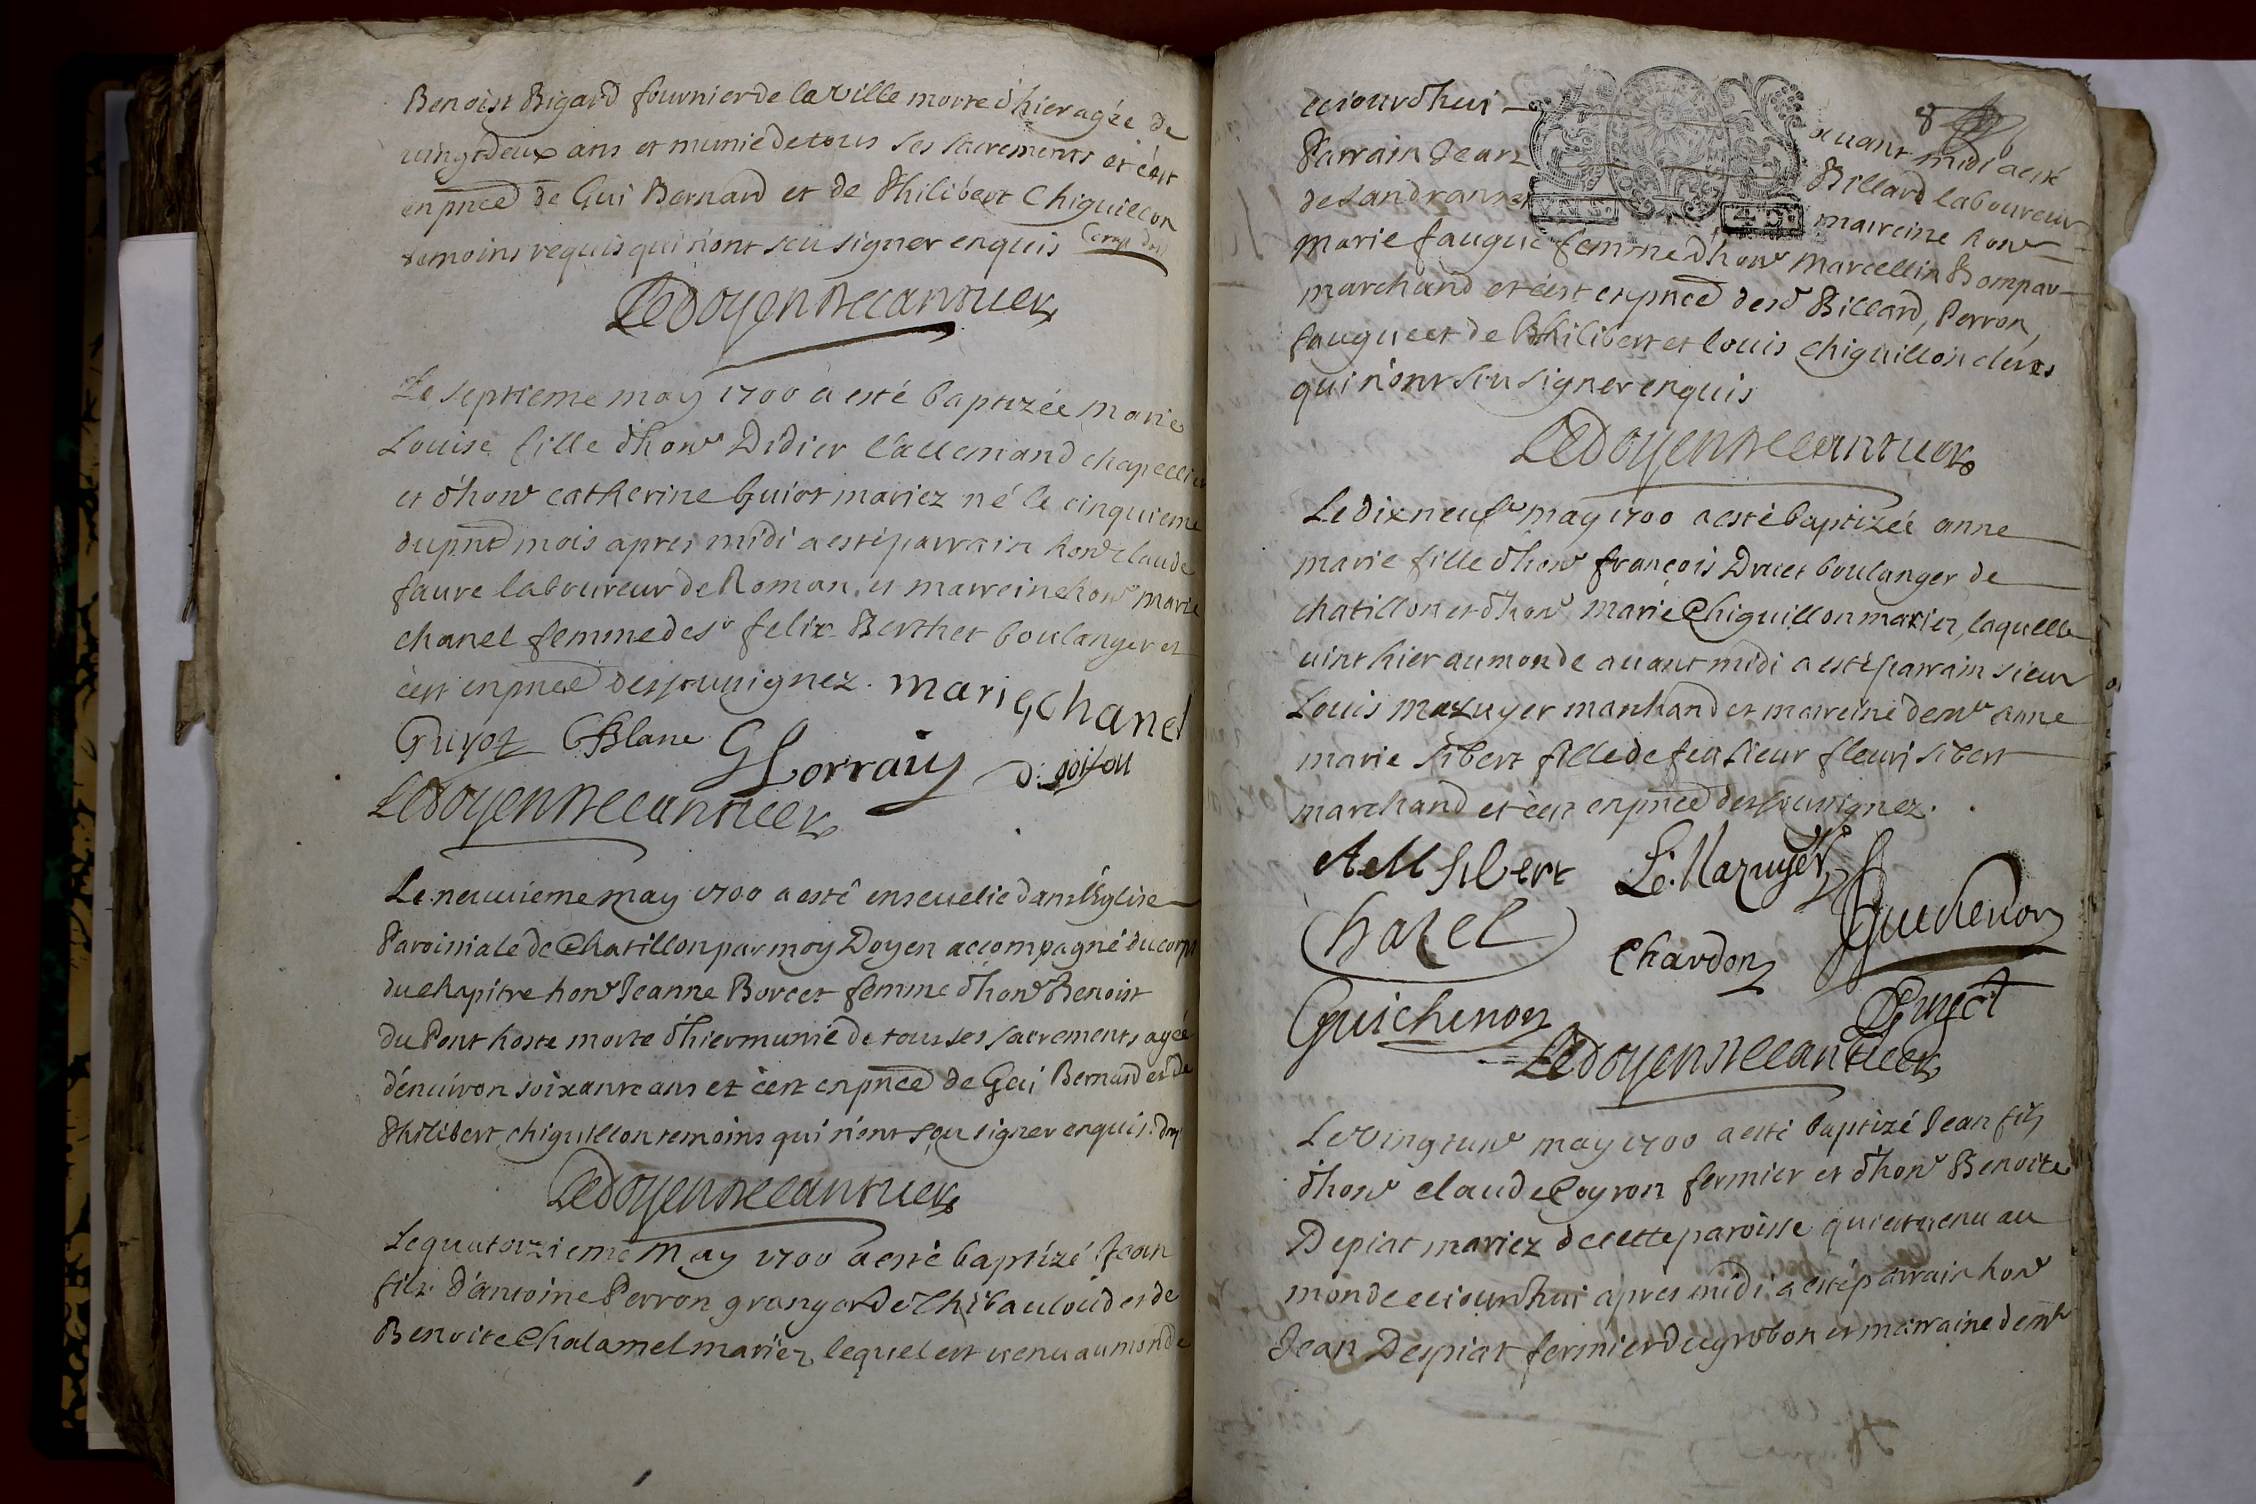 Benoist Bigard fournier de la Ville morte d'hier agée de
uingtdeux ans et munie de tous ses sacrements et c'est
en pnce de Gui Bernard et de Philibert Chiguillon
temoins requis qui n'ont sceu signer enquis
Ledoyen
Le septieme may 1700 a esté baptizée Marie
Louise fille d'hon Didier Lallemand chapellier
et d'hon catherine Guiot mariez né le cinquieme
du pnt mois apres midi a esté parrain hon claude
faure laboureur de Roman et marreine hon Marie
chanel femme de sr felix Berthet boulanger et
c'est en pnce des souuignez. marie Chanel
Guyot CBlanc GLorrain
Ledoyen
Le neuuieme may 1700 a esté enseuelie dans l'Eglise
Paroissiale de Chatillon par moy Doyen accompagné du corps
du chapitre hon Jeanne Borcet femme d'hon Benoist
Du Pont hoste morte d'hier munie de tous ses sacrements agée
d'enuiron soixante ans et c'est en pnce de Gui Bernard et de
Philibert chiguillon temoins qui n'ont sçeu signer enquis
Ledoyen
Le quatorzieme May 1700 a esté baptizé Jean
filz d'antoine Perron granger de Thibauloud et de
Benoite Chalamel mariez, lequel est uenu au monde
8
ceiourdhui auant midi a esté
Parrain Jean Billard laboureur
de sandrans marreine hon
Marie faugue femme d'hon Marcellin Bompar
marchand et c'est en pnce desd Billard, Perron,
faugue et de Philibert et Louis Chiguillon clercs
qui n'ont sceu signer enquis
Ledoyen
Le dixneufe may 1700 a esté baptizée anne
marie fille d'hon françois Druet boulanger de
chatillon et d'hon Marie Chiguillon mariez, laquelle
uint hier au monde auant midi a esté parrain sieur
Louis Mazuyer marchand et marreine demle anne
marie sibert fille de feu sieur fleuri sibert
marchand et c'est en pnce des souuignez.
AM Sibert L. Mazuyer
Chazel Chardon Guichenon
Guichenon Druet
Ledoyen
Le Vingtune may 1700 a esté baptizé Jean filz
d'hon claude Coyron fermier et d'hon Benoite
Depiat mariez de cette paroisse qui est uenu au
monde ceiourdhui apres midi a esté parrain hon
Jean Despiat fermier du grobon et marraine demle